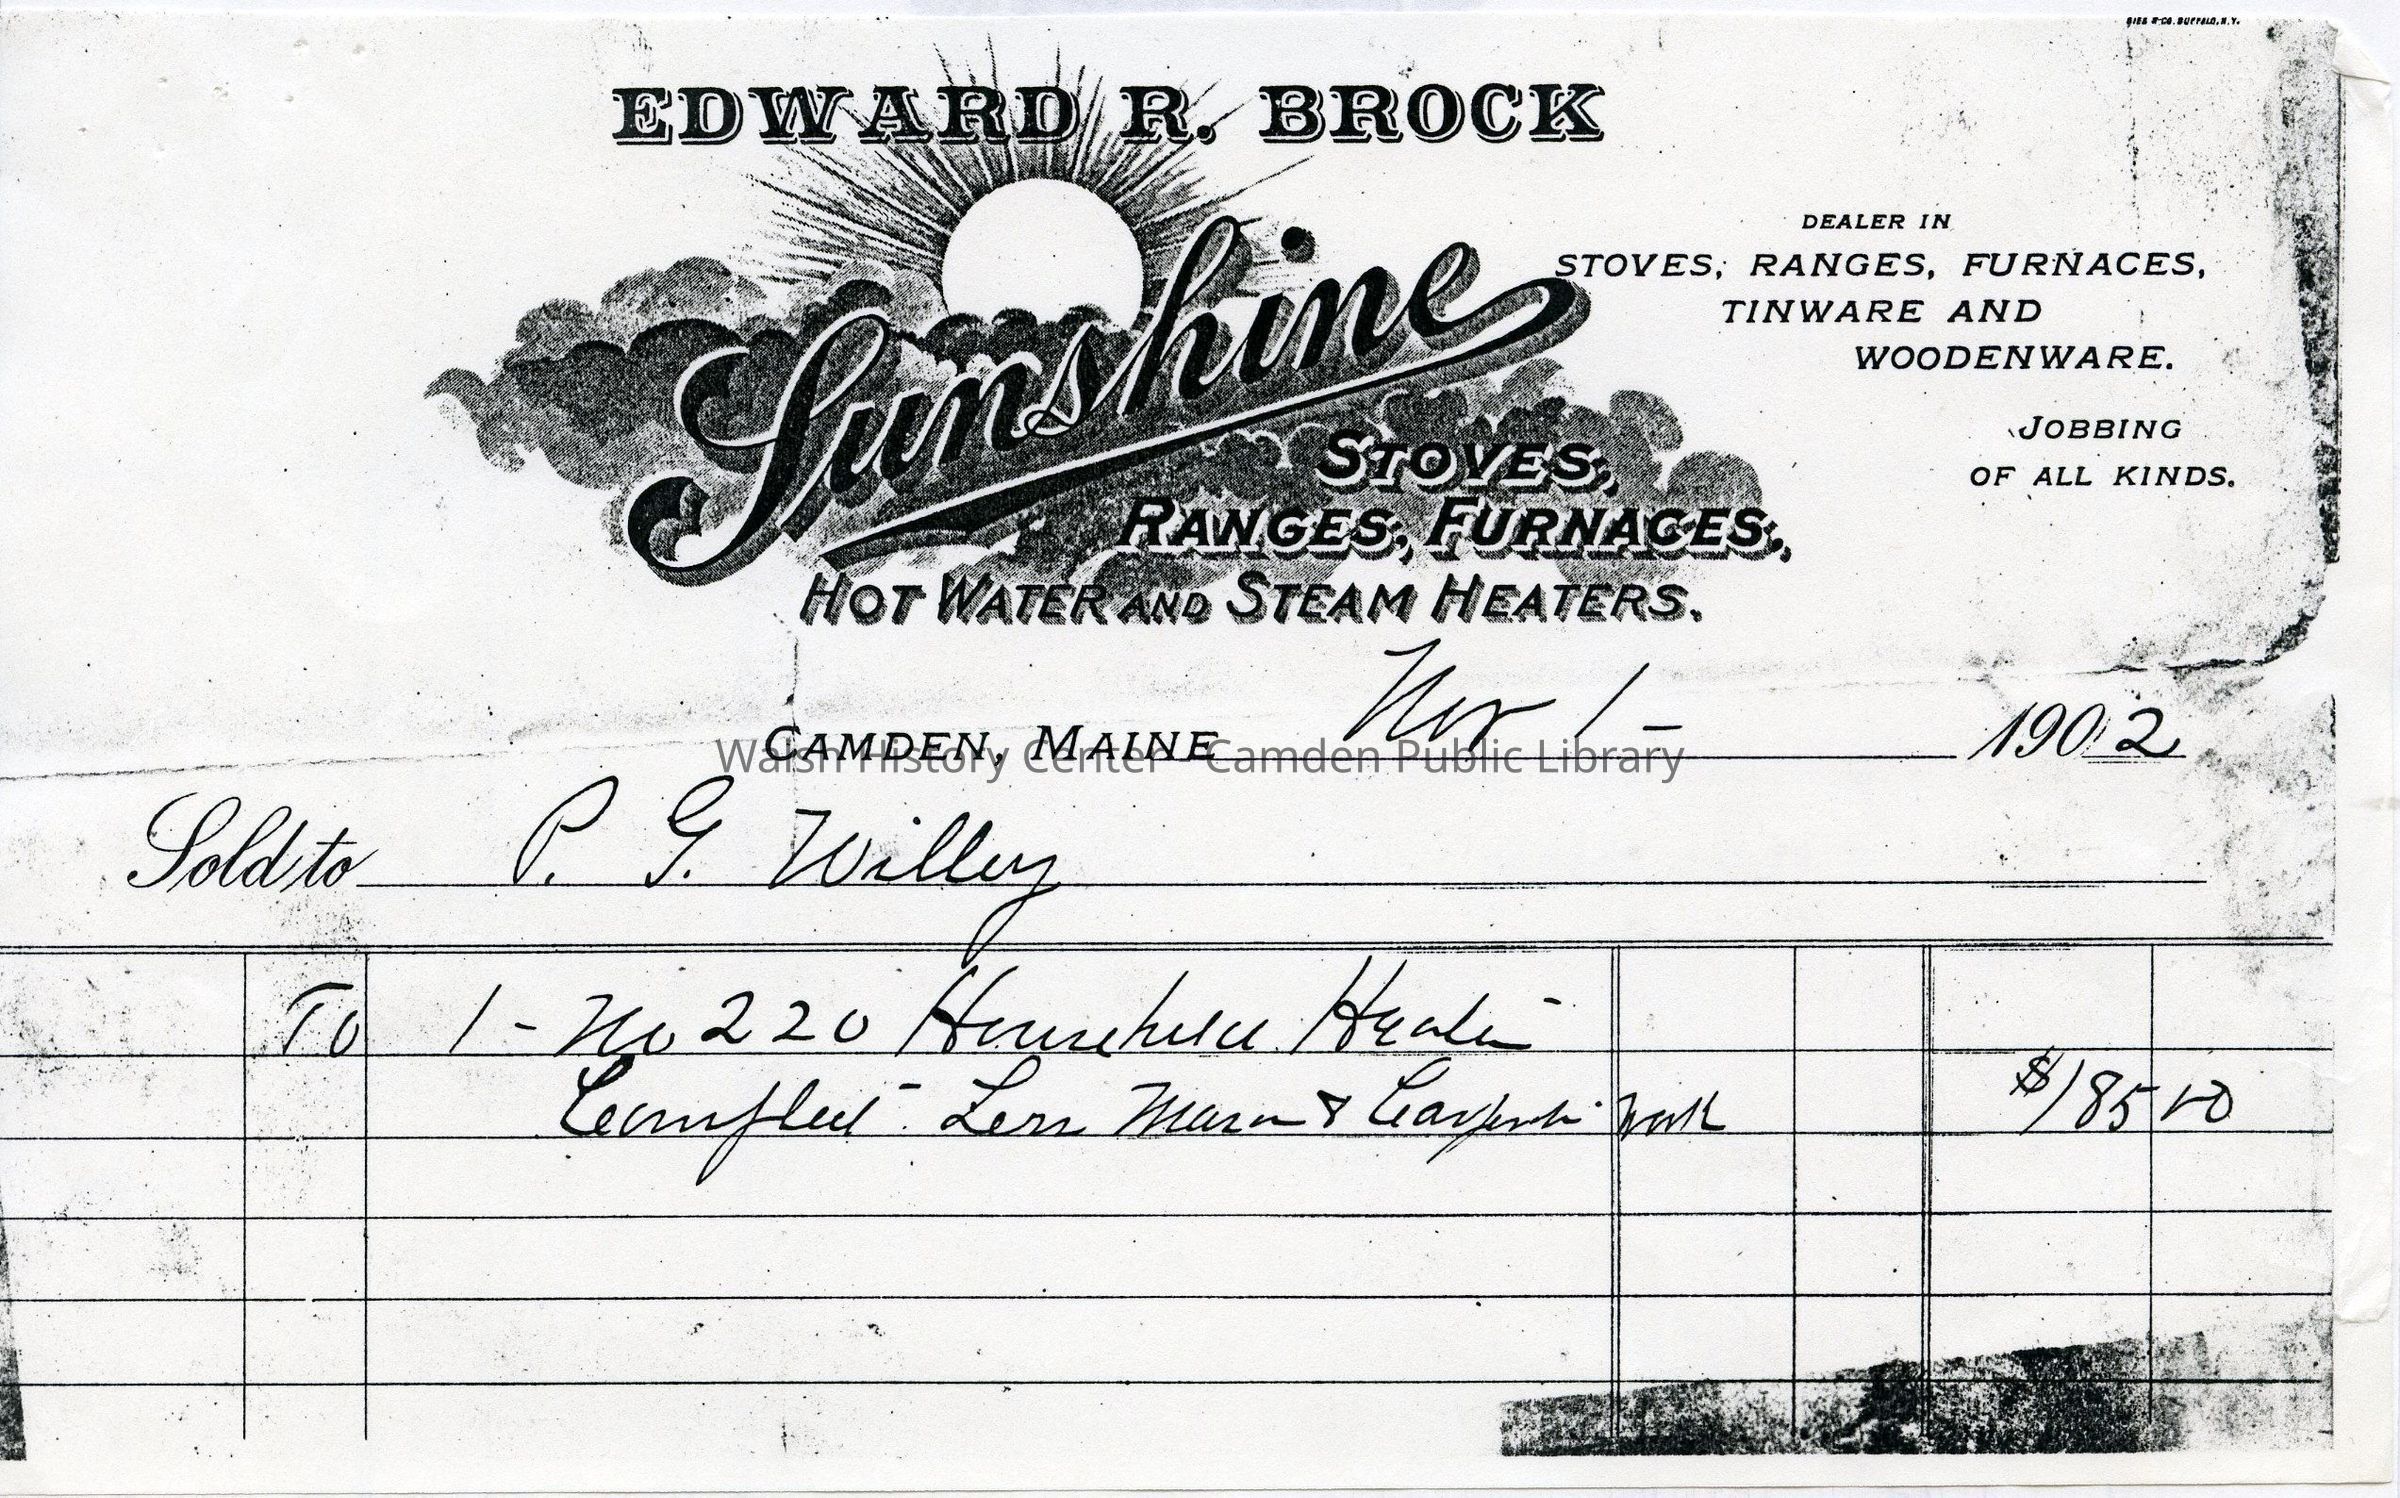 GIES & CO. BUFFALO, N.Y.
EDWARD R. BROCK
Sunshine
STOVES,
RANGES, FURNACES,
HOT WATER AND STEAM HEATERS.
DEALER IN
STOVES, RANGES, FURNACES,
TINWARE AND
WOODENWARE.
JOBBING
OF ALL KINDS.
CAMDEN, MAINE Nov 1 - 1902
Walsh History Center - Camden Public Library
Sold to P. G. Willey
To 1 - No 220 Household Heater
Complete Less Mason & Carpenter Work $185 00